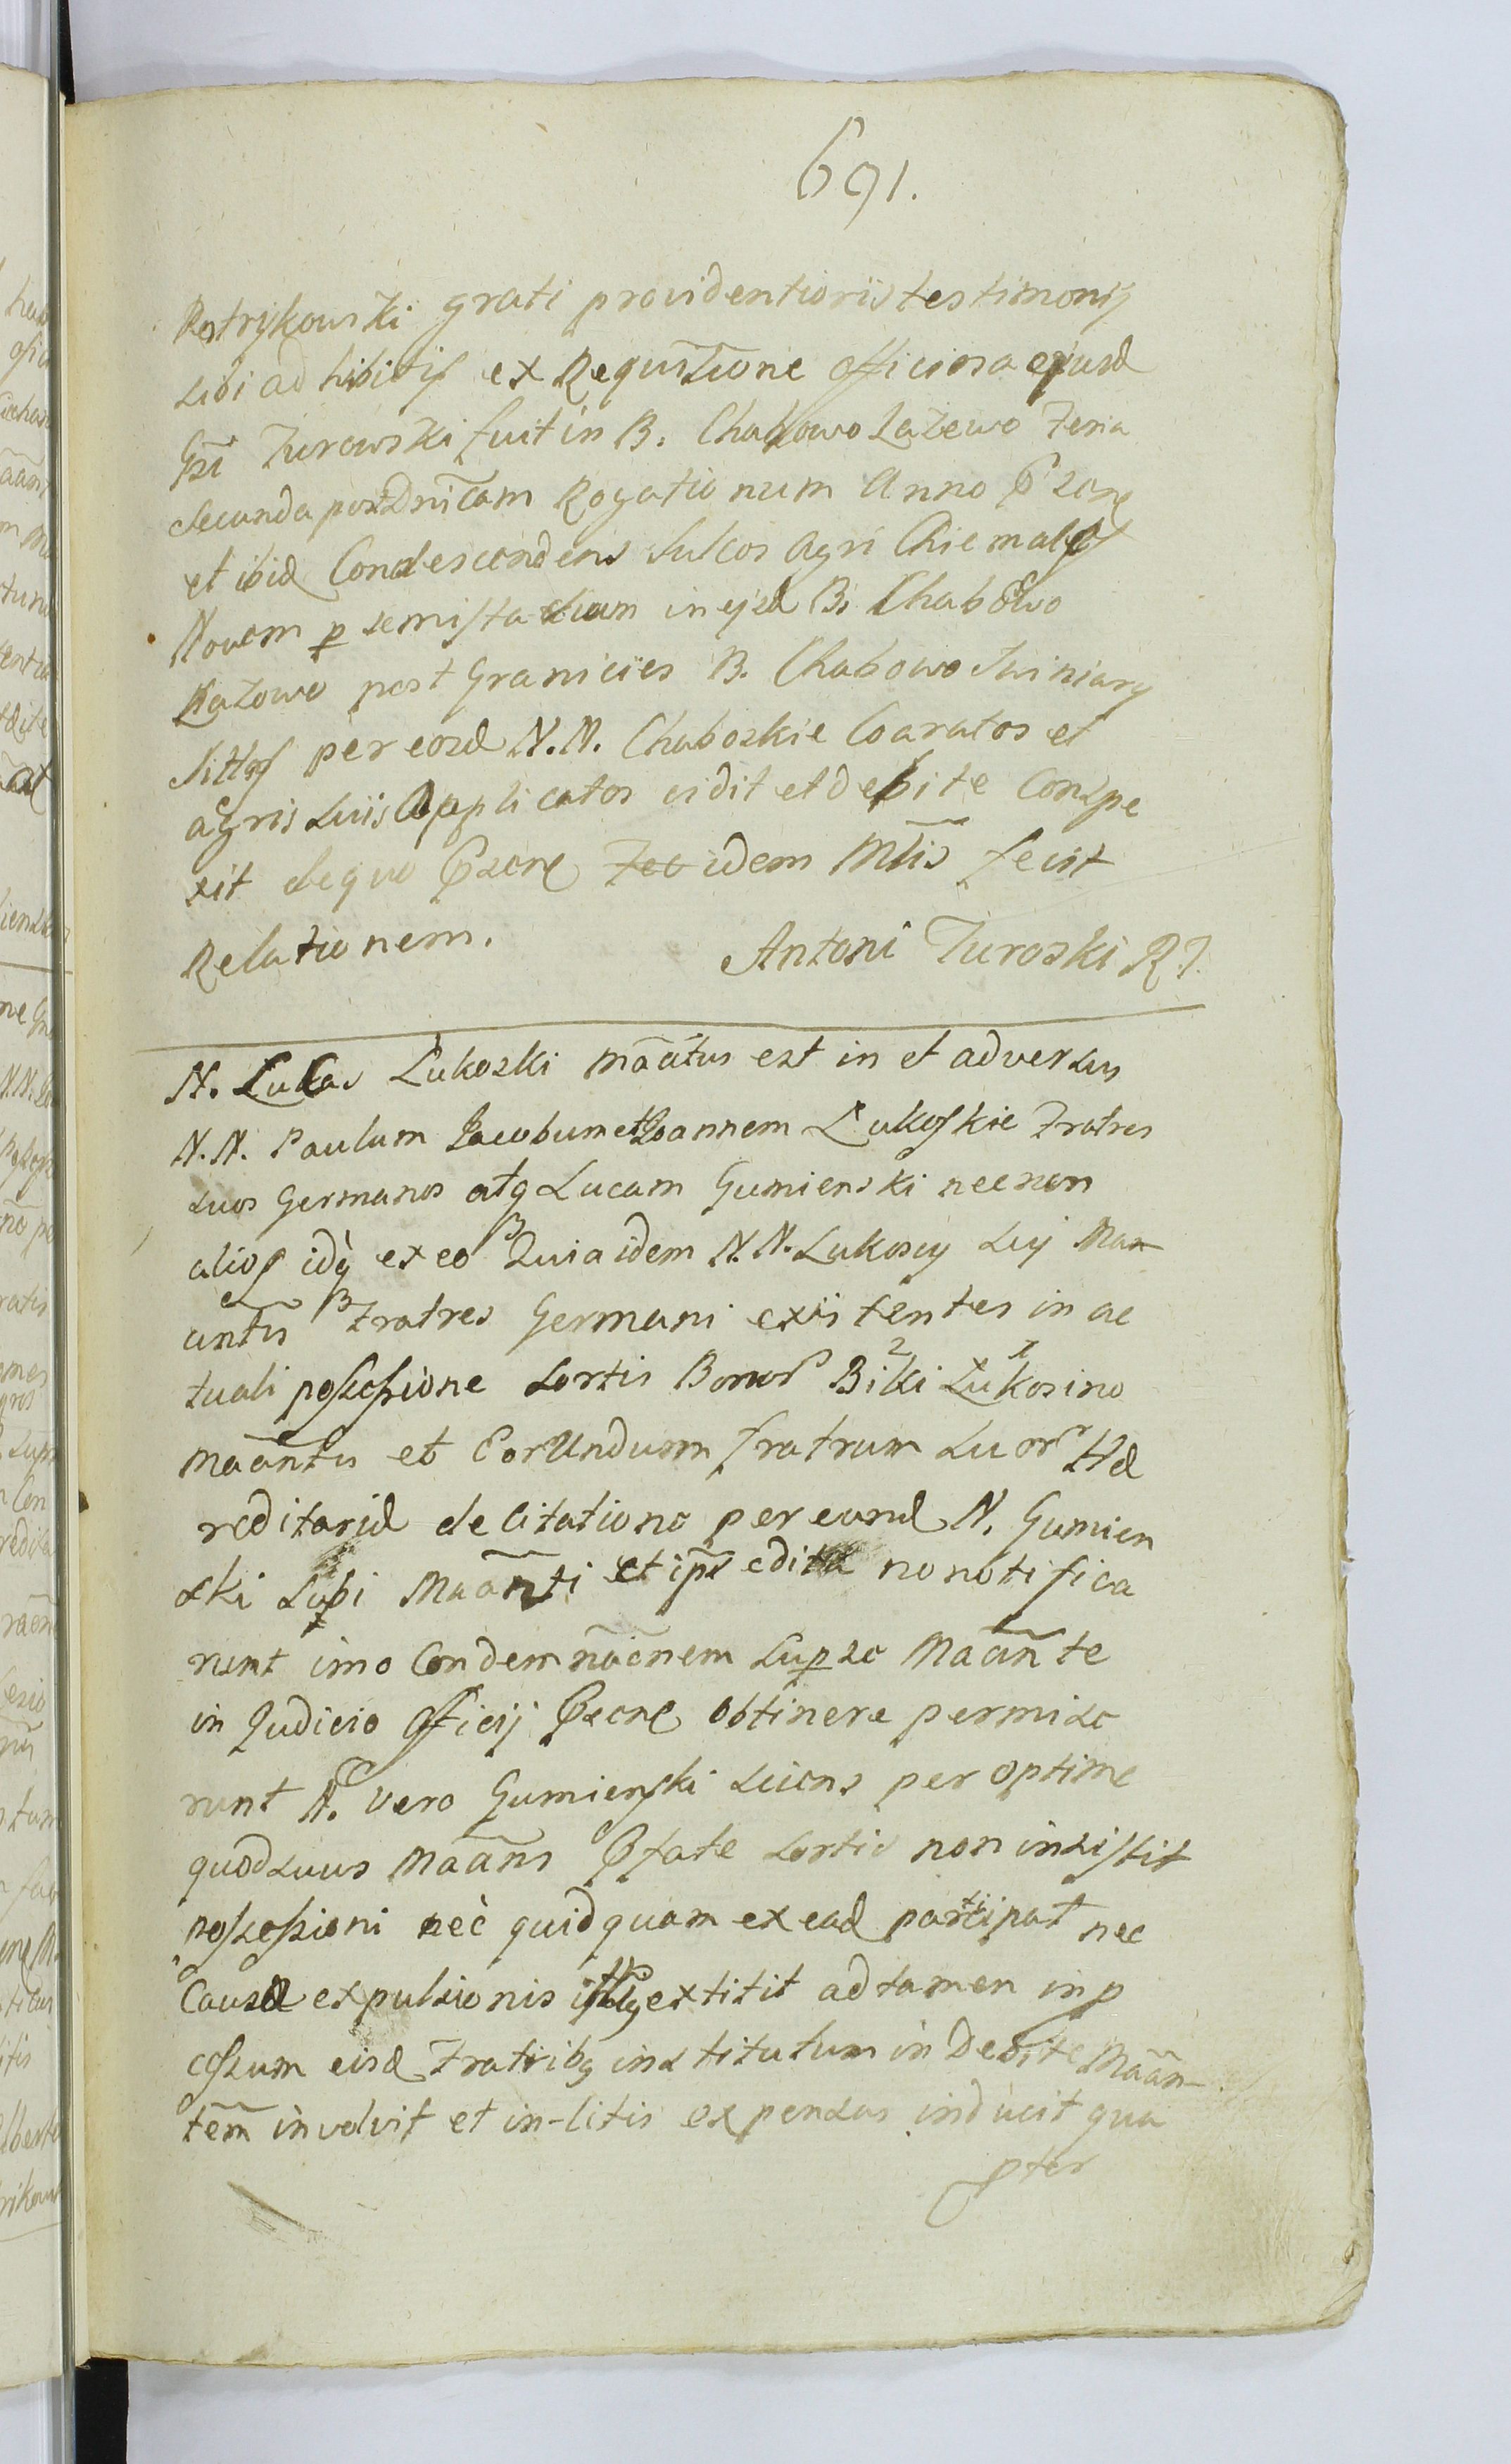 691.
Kostrykowski grati providentioris testimonij
sibi adhibitis ex Requisitione officiosa ejusd
Gsi Zurowski fuit in B. Chabowo Łazewo Feria
Secunda post Dnicam Rogationum Anno Psenę
et ibid Condescendens Sulcos Agri Chiemales
Novem p semistadium in ejsd B. Chabowo
Łazowo post Granicies B. Chabowo Swiniary
Sittos per eosd N.N. Chaboskie Coaratos et
agris suis Applicatos vidit et debite Conspe
xit de quo Psenę idem Mtis fecit
Relationem.
Antoni Zuroski R
N. Lucas Łukoski Mãatus est in et adversus
N.N. Paulum Jacobum et Joannem Łukoskie Fratres
suos Germanos atq Lucam Gumienski necnon
alios idq ex eo Quia idem N.N. Łukoscy sui Ma
antis Fratres Germani existentes in ac
tuali possessione sortis Bonor Biki Łukosino
Maantis et Eorundum fratrum suor Hæ
reditariæ de Citatione per eund N. Gumien
ski Maanti et ips edita no notifica
runt imo Condemnãcnem sup se Maãnte
in Judicio Officij Psenę obtinere permise
runt N. vero Gumienski sciens per optime
quod suus Maans Pfate sortis non insistit
possessioni nec quidquam ex ead participat nec
Causa expulsionis extitit ad tamen in p
cessum eisd Fratribq institutum in Debite Maan
tem involvit et in-litis expensas inducit qua
pter